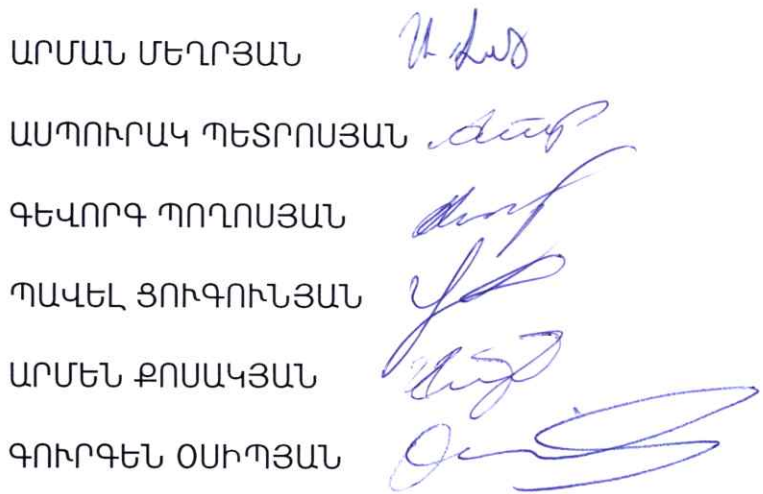 ԱՐՄԱՆ ՄԵՂՐՅԱՆ
ԱՍՊՈՒՐԱԿ ՊԵՏՐՈՍՅԱՆ
ԳԵՎՈՐԳ ՊՈՂՈՍՅԱՆ
ՊԱՎԵԼ ՑՈՒԳՈՒՆՅԱՆ
ԱՐՄԵՆ ՔՈՍԱԿՅԱՆ
ԳՈՒՐԳԵՆ ՕՍԻՊՅԱՆ